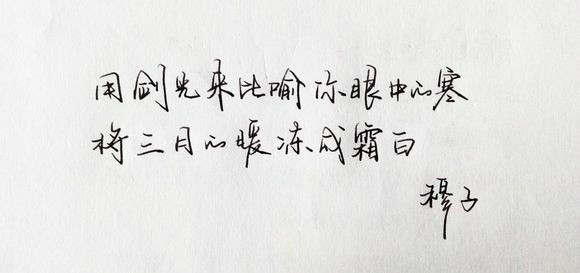 用剑光来比喻你眼中心寒
将三月心暖冻成霜白
穆子